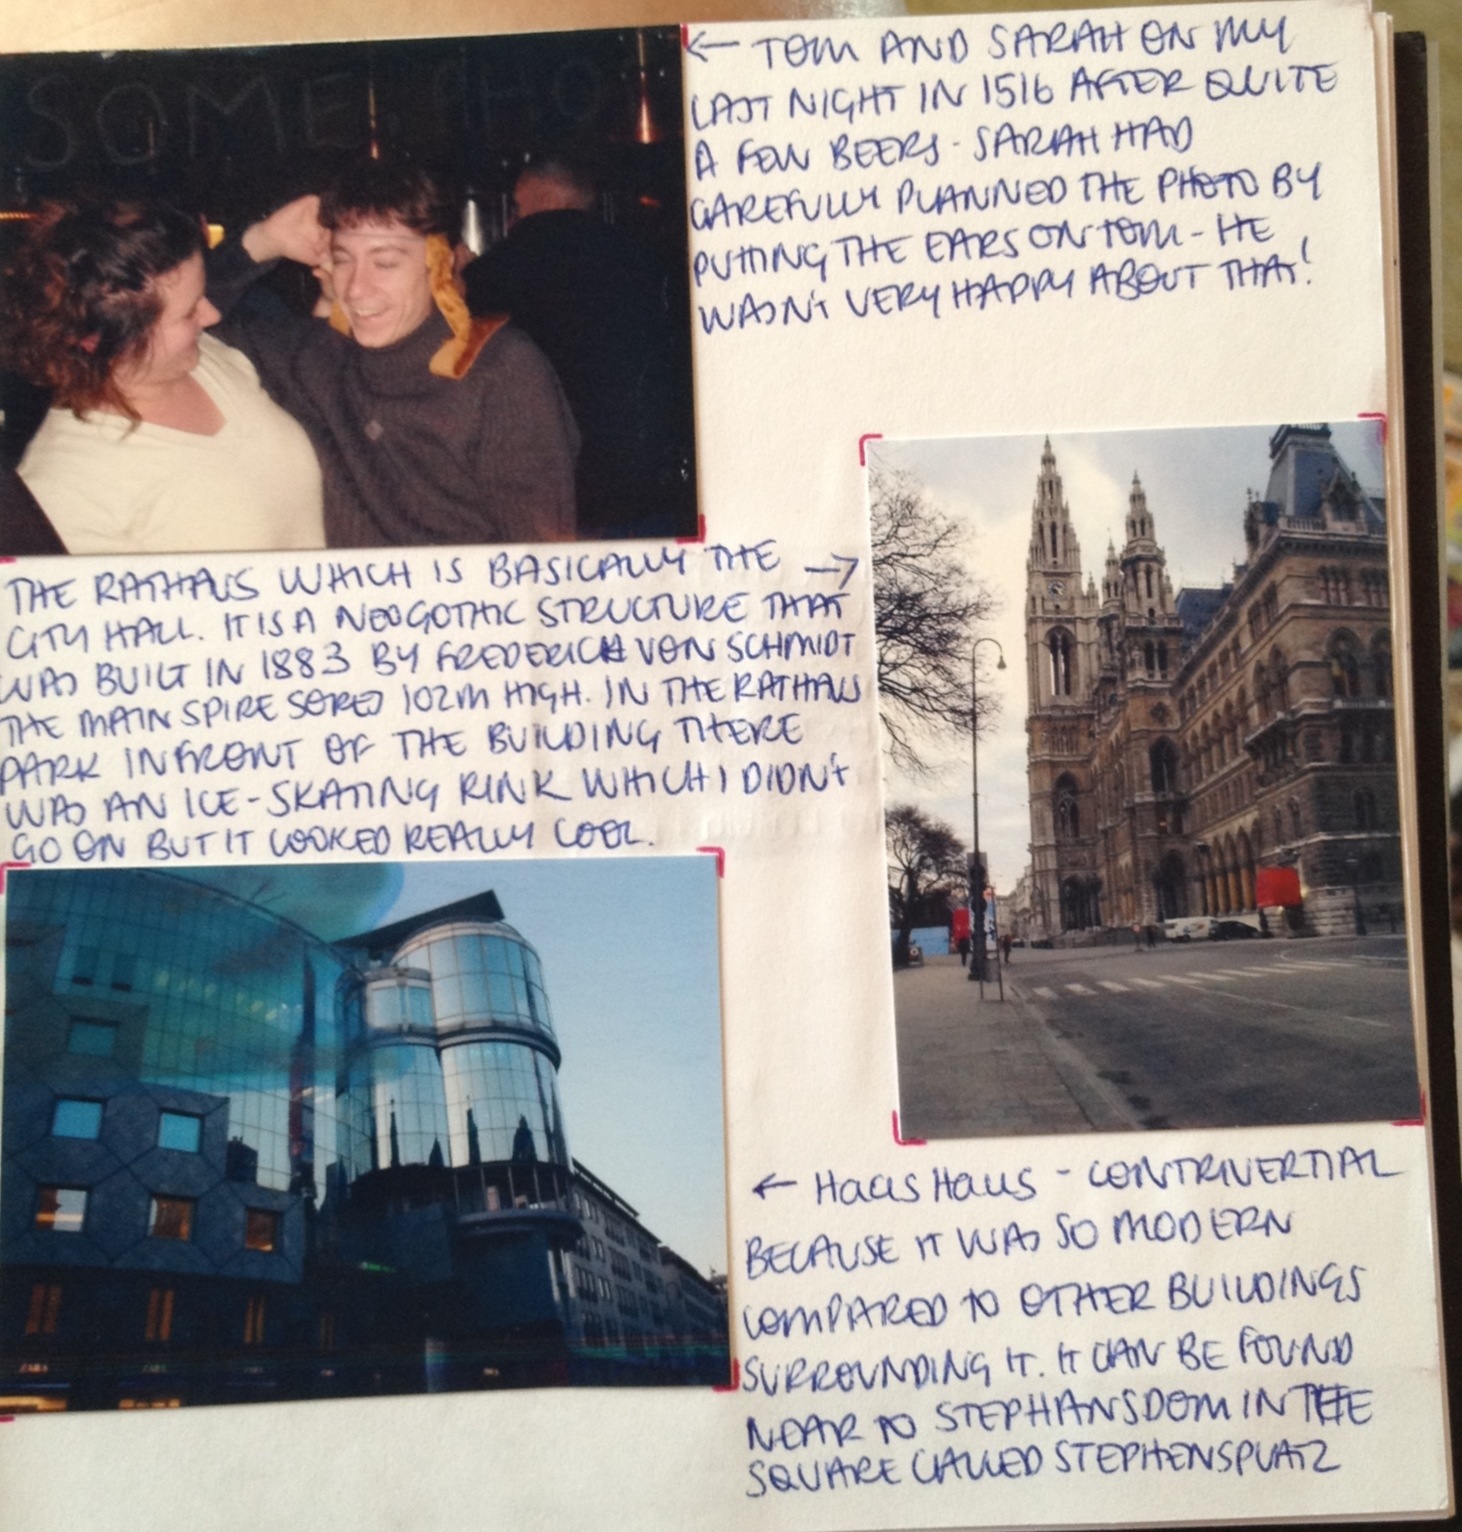 SOME
← TOM AND SARAH ON MY
LAST NIGHT IN 1516 AFTER QUITE
A FEW BEERS - SARAH HAD
CAREFULLY PLANNED THE PHOTO BY
PUTTING THE EARS ON TOM - HE
WASN'T VERY HAPPY ABOUT THAT!
THE RATHAUS WHICH IS BASICALLY THE →
CITY HALL. IT IS A NEOGOTHIC STRUCTURE THAT
WAS BUILT IN 1883 BY FREDERICH VON SCHMIDT
THE MAIN SPIRE SORES 102M HIGH. IN THE RATHAUS
PARK INFRONT OF THE BUILDING THERE
WAS AN ICE-SKATING RINK WHICH I DIDN'T
GO ON BUT IT LOOKED REALLY COOL.
← HAAS HAUS - CONTRIVERTIAL
BECAUSE IT WAS SO MODERN
COMPARED TO OTHER BUILDINGS
SURROUNDING IT. IT CAN BE FOUND
NEAR TO STEPHANSDOM IN THE
SQUARE CALLED STEPHENSPLATZ